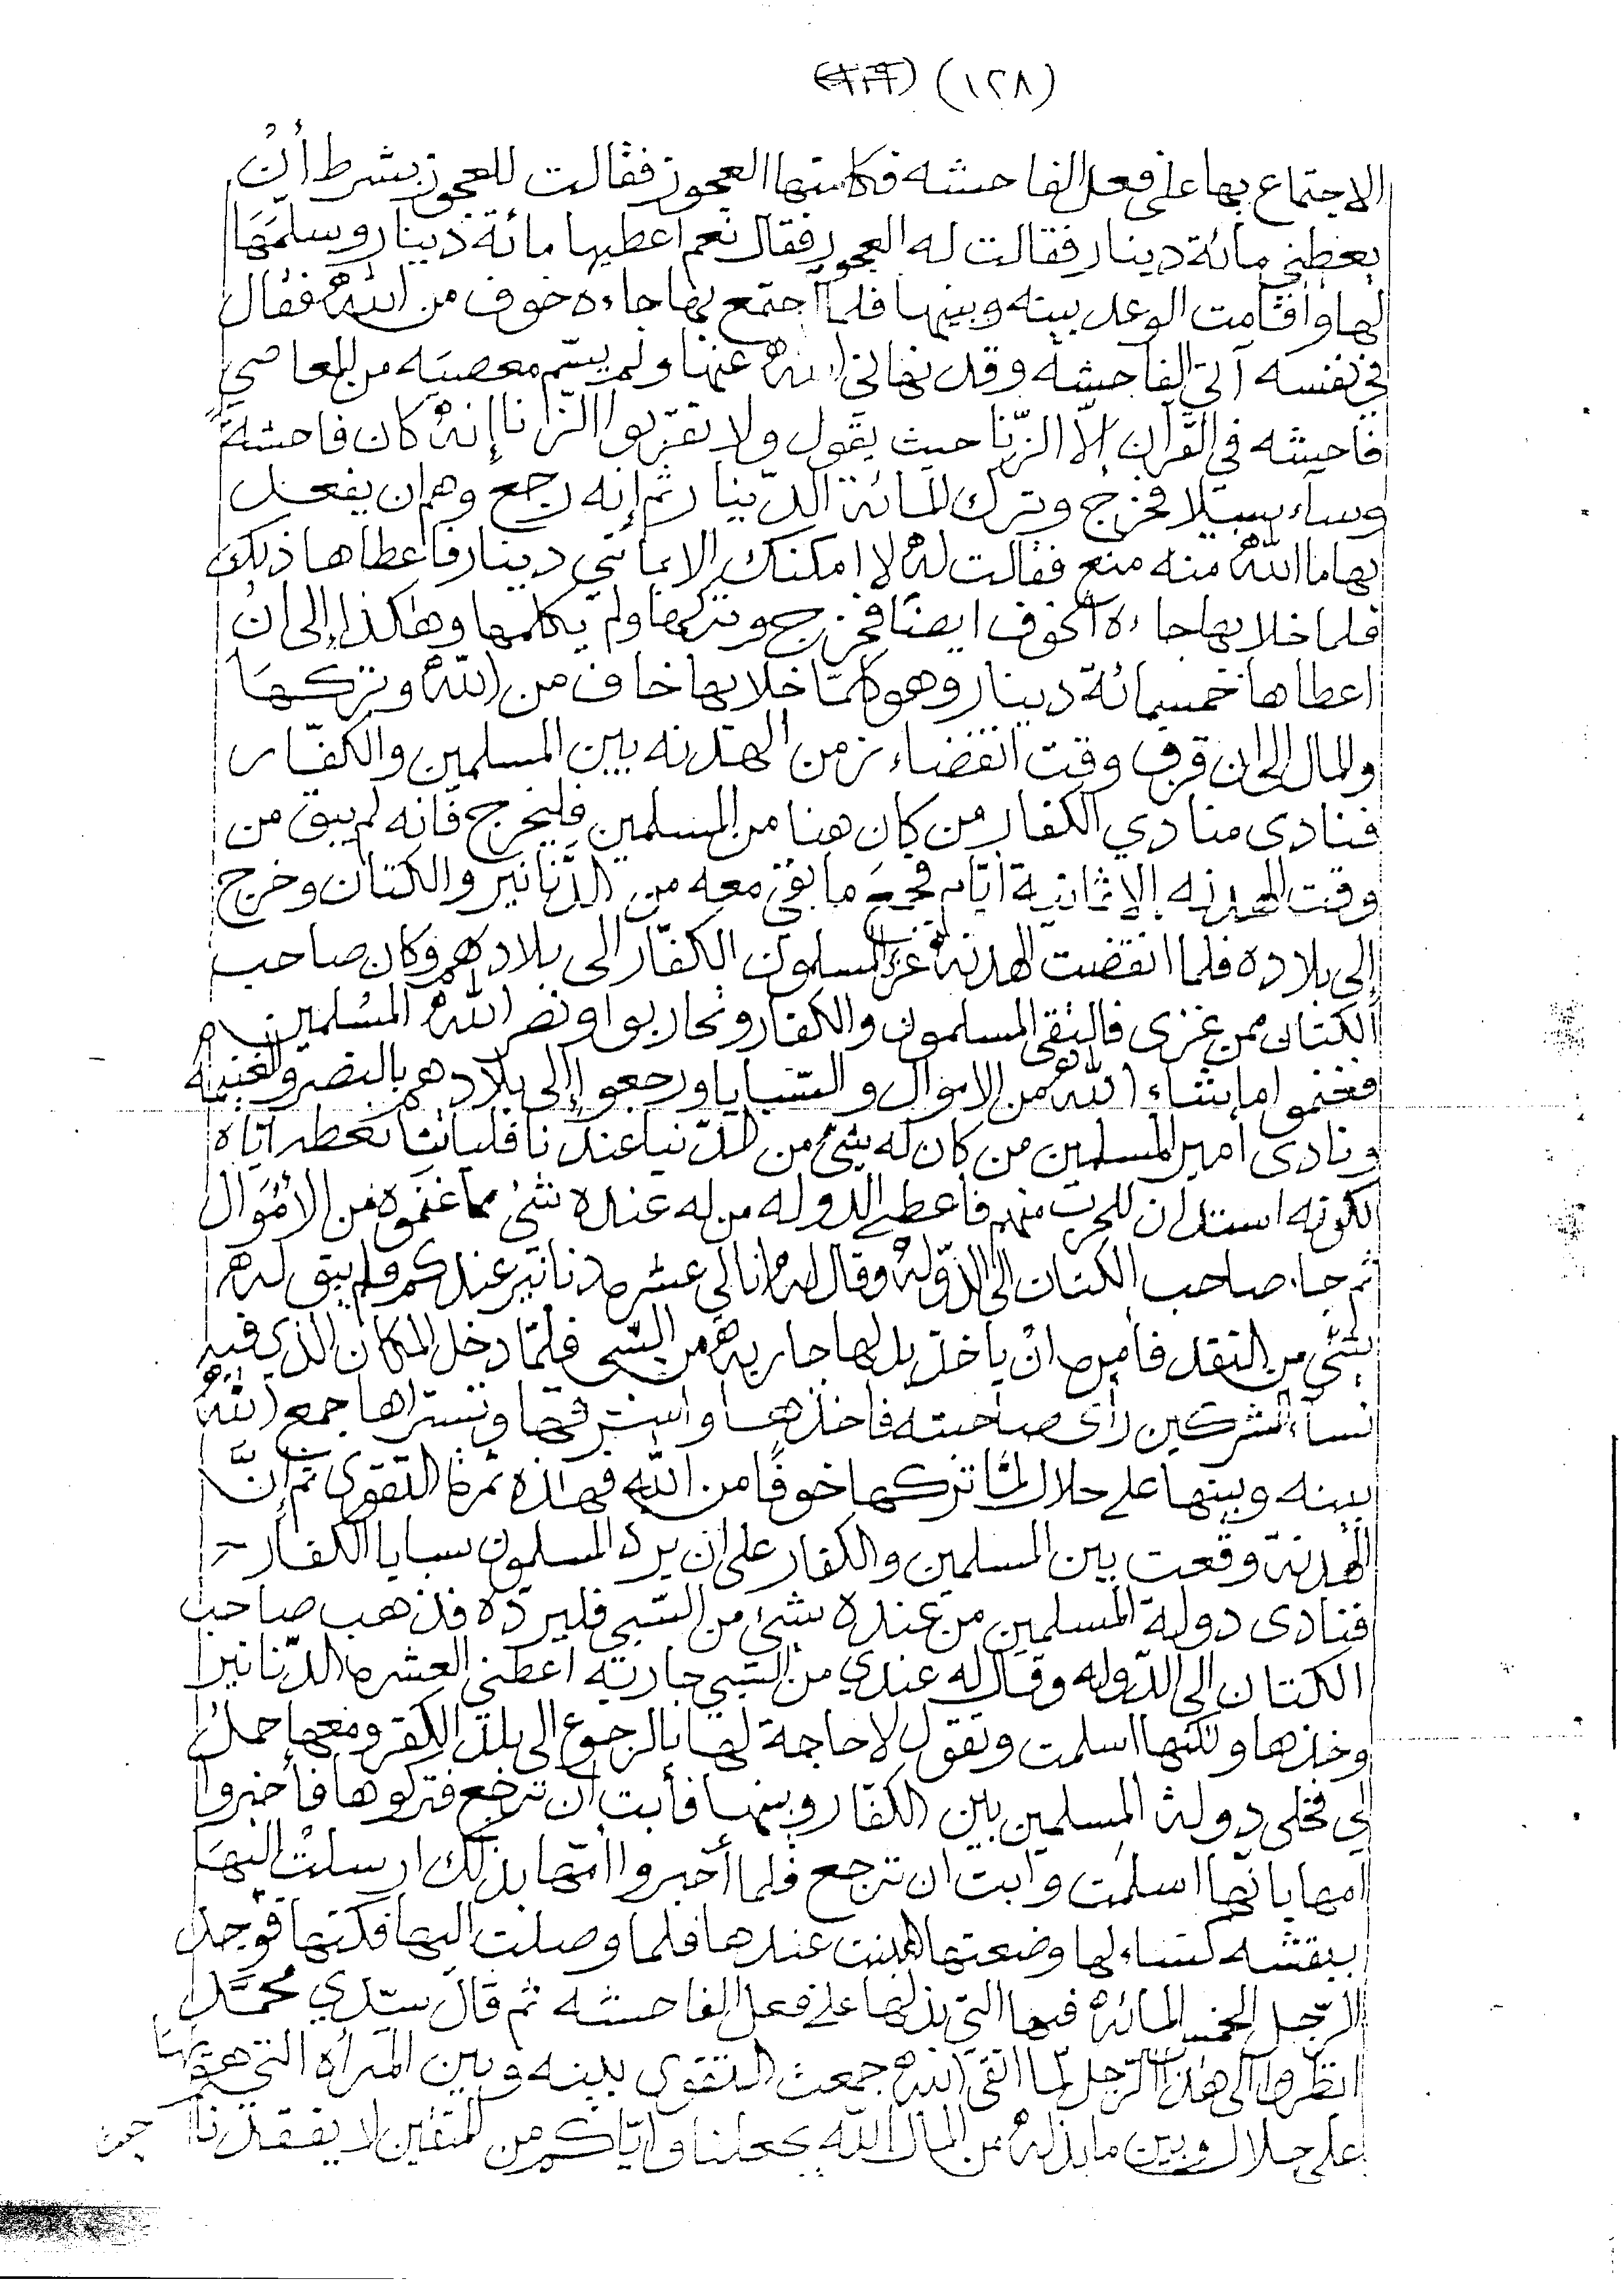 (١٢٨)
الاجتماع بها على فعل الفاحشه فكلمتها العجوز فقالت للعجوز بشرط أن
يعطني مائة دينار فقالت له العجوز فقال نعم اعطيها مائة دينار وسلمها
لها وأقامت الوعد بينه وبينها فلما اجتمع بها جاءه خوف من الله فقال
في نفسه آتي الفاحشه وقد نهاني الله عنها ولم يسّم معصيه من المعاصي
فاحيشه في القرآن إلّا الزّنا حيث يقول ولا تقربوا الزّنا إنه كان فاحشةً
وساء سبيلا فخرج وترك المائة الدّينار ثم إنه رجع وهم ان يفعل
بها ما الله منه منع فقالت له لا امكنك إلا بمائتي دينار فاعطاها ذلك
فلما خلا بها جاءه الخوف ايضًا فخرج وتركها ولم يكلمها وهاكذا إلى ان
اعطاها خمسمائة دينار وهو كلمّا خلا بها خاف من الله وتركها
والمال الى ان قرب وقت انقضاء زمن الهدنه بين المسلمين والكفّار
فنادى منادي الكفار من كان هنا من المسلمين فليخرج فانه لم يبق من
وقت الهدنه إلا ثمانية ايّام فجمع ما بقي معه من الدّنانير والكتان وخرج
إلى بلاده فلما انقضت الهدنة غزى المسلمون الكفّار الى بلادهم وكان صاحب
الكتان ممن غزى فالتقى المسلمون والكفار وتحاربوا ونصر الله المسلمين
فغنموا ما شاء الله من الاموال والسّبايا ورجعوا إلى بلادهم بالنصر والغنيمة
ونادى أمير المسلمين من كان له شئ من الدّنيا عندنا فليأتنا نعطه ايّاه
لكونه استدان للحرب منهم فاعطى الدوله من له عنده شئ مما غنموه من الأموال
ثم جاء صاحب الكتان الى الدّوله وقال لهم انا لي عشره دنانير عندكم ولم يبق لدهم
شئ من النقد فأمره ان ياخذ بدلها جاريه من السّبي فلمّا دخل المكان الذي فيه
نساء المشركين رأى صاحبته فاخذها واسترقها وتسراها جمع الله
بينه وبينها على حلال لمّا تركها خوفًا من الله فهاذه ثمرة التقوى ثم إنَّ
الهدنة وقعت بين المسلمين والكفار على ان يرد المسلمون سبايا الكفار
فنادى دولة المسلمين من عنده شئ من السّبي فليردّه فذهب صاحب
الكتان إلى الدّوله وقال له عندي من السّبي جاريه اعطني العشره الدّنانير
وخذها ولكنها اسلمت وتقول لا حاجة لها بالرجوع الى بلد الكفر ومعها حملٌ
لي فخلى دولة المسلمين بين الكفار وبينها فأبت ان ترجع فتركوها فأخبروا
امها بانّها اسلمت وابت ان ترجع فلما أخبروا امّها بذلك ارسلت اليها
ببقشه كساء لها وضعتها البنت عندها فلما وصلت اليها فكتها فوجد
الرّجل الخمس المائه فيها التي بذلها على فعل الفاحشه ثم قال سيّدي محمّد
انظروا الى هذا الرجل لمّا اتقى الله جمعت التقوى بينه وبين المرأه التي هويها
على حلال وبين ما بذله من المال الله يجعلنا وايّاكم من المتقين لا يفقدنا